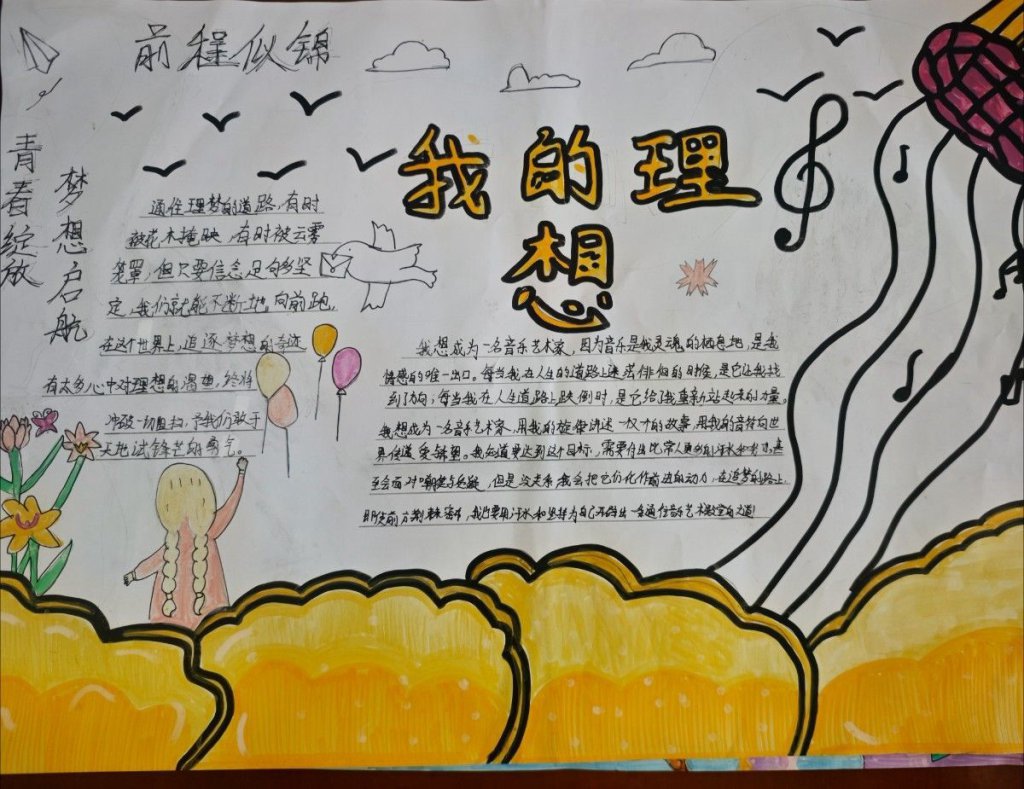 前程似锦
青春绽放
梦想启航
我的理
想
通往理梦的道路,有时
被花木掩映,有时被云雾
笼罩,但只要信念足够坚
定,我们就能不断地向前跑.
在这个世界上,追逐梦想的奇迹
有太多心中对理想的渴望,终将
冲破一切阻挡,予我们敢于
天地试锋芒的勇气。
我想成为一名音乐艺术家,因为音乐是我灵魂的栖息地,是我
情感的唯一出口。每当我在人生的道路上迷茫徘徊的时候,是它让我找
到了方向;每当我在人生道路上跌倒时,是它给了我重新站起来的力量。
我想成为一名音乐艺术家,用我的旋律讲述一个个的故事,用我的音符向世
界传递爱与希望。我知道要达到这个目标,需要付出比常人更多的汗水和努力,甚
至会面对嘲笑与质疑,但是没关系我会把它们化作前进的动力,在追梦的路上,
即使前方荆棘密布,我也要用汗水和坚持为自己 通往音乐艺术殿堂的大道